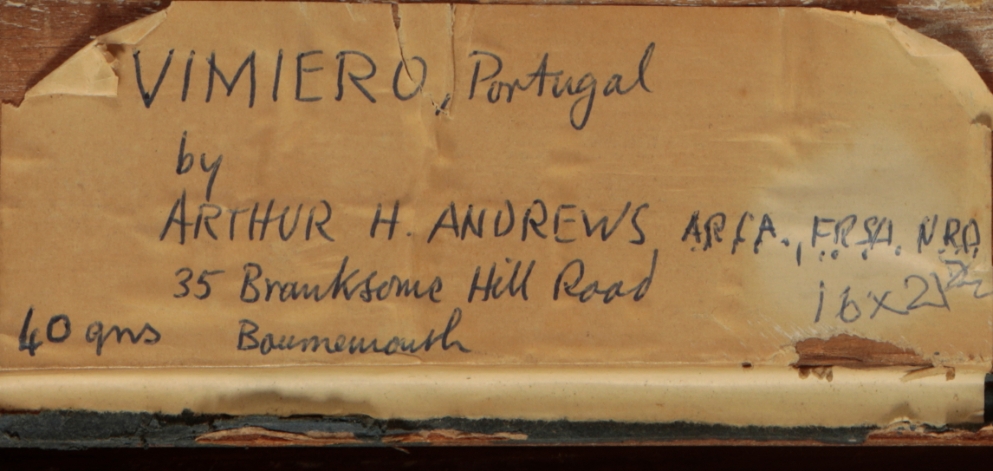 VIMIERO, Portugal
by
ARTHUR H. ANDREWS, A.R.C.A., F.R.S.A. N.R.D.
35 Branksome Hill Road
16 x 21
40 gns Bournemouth